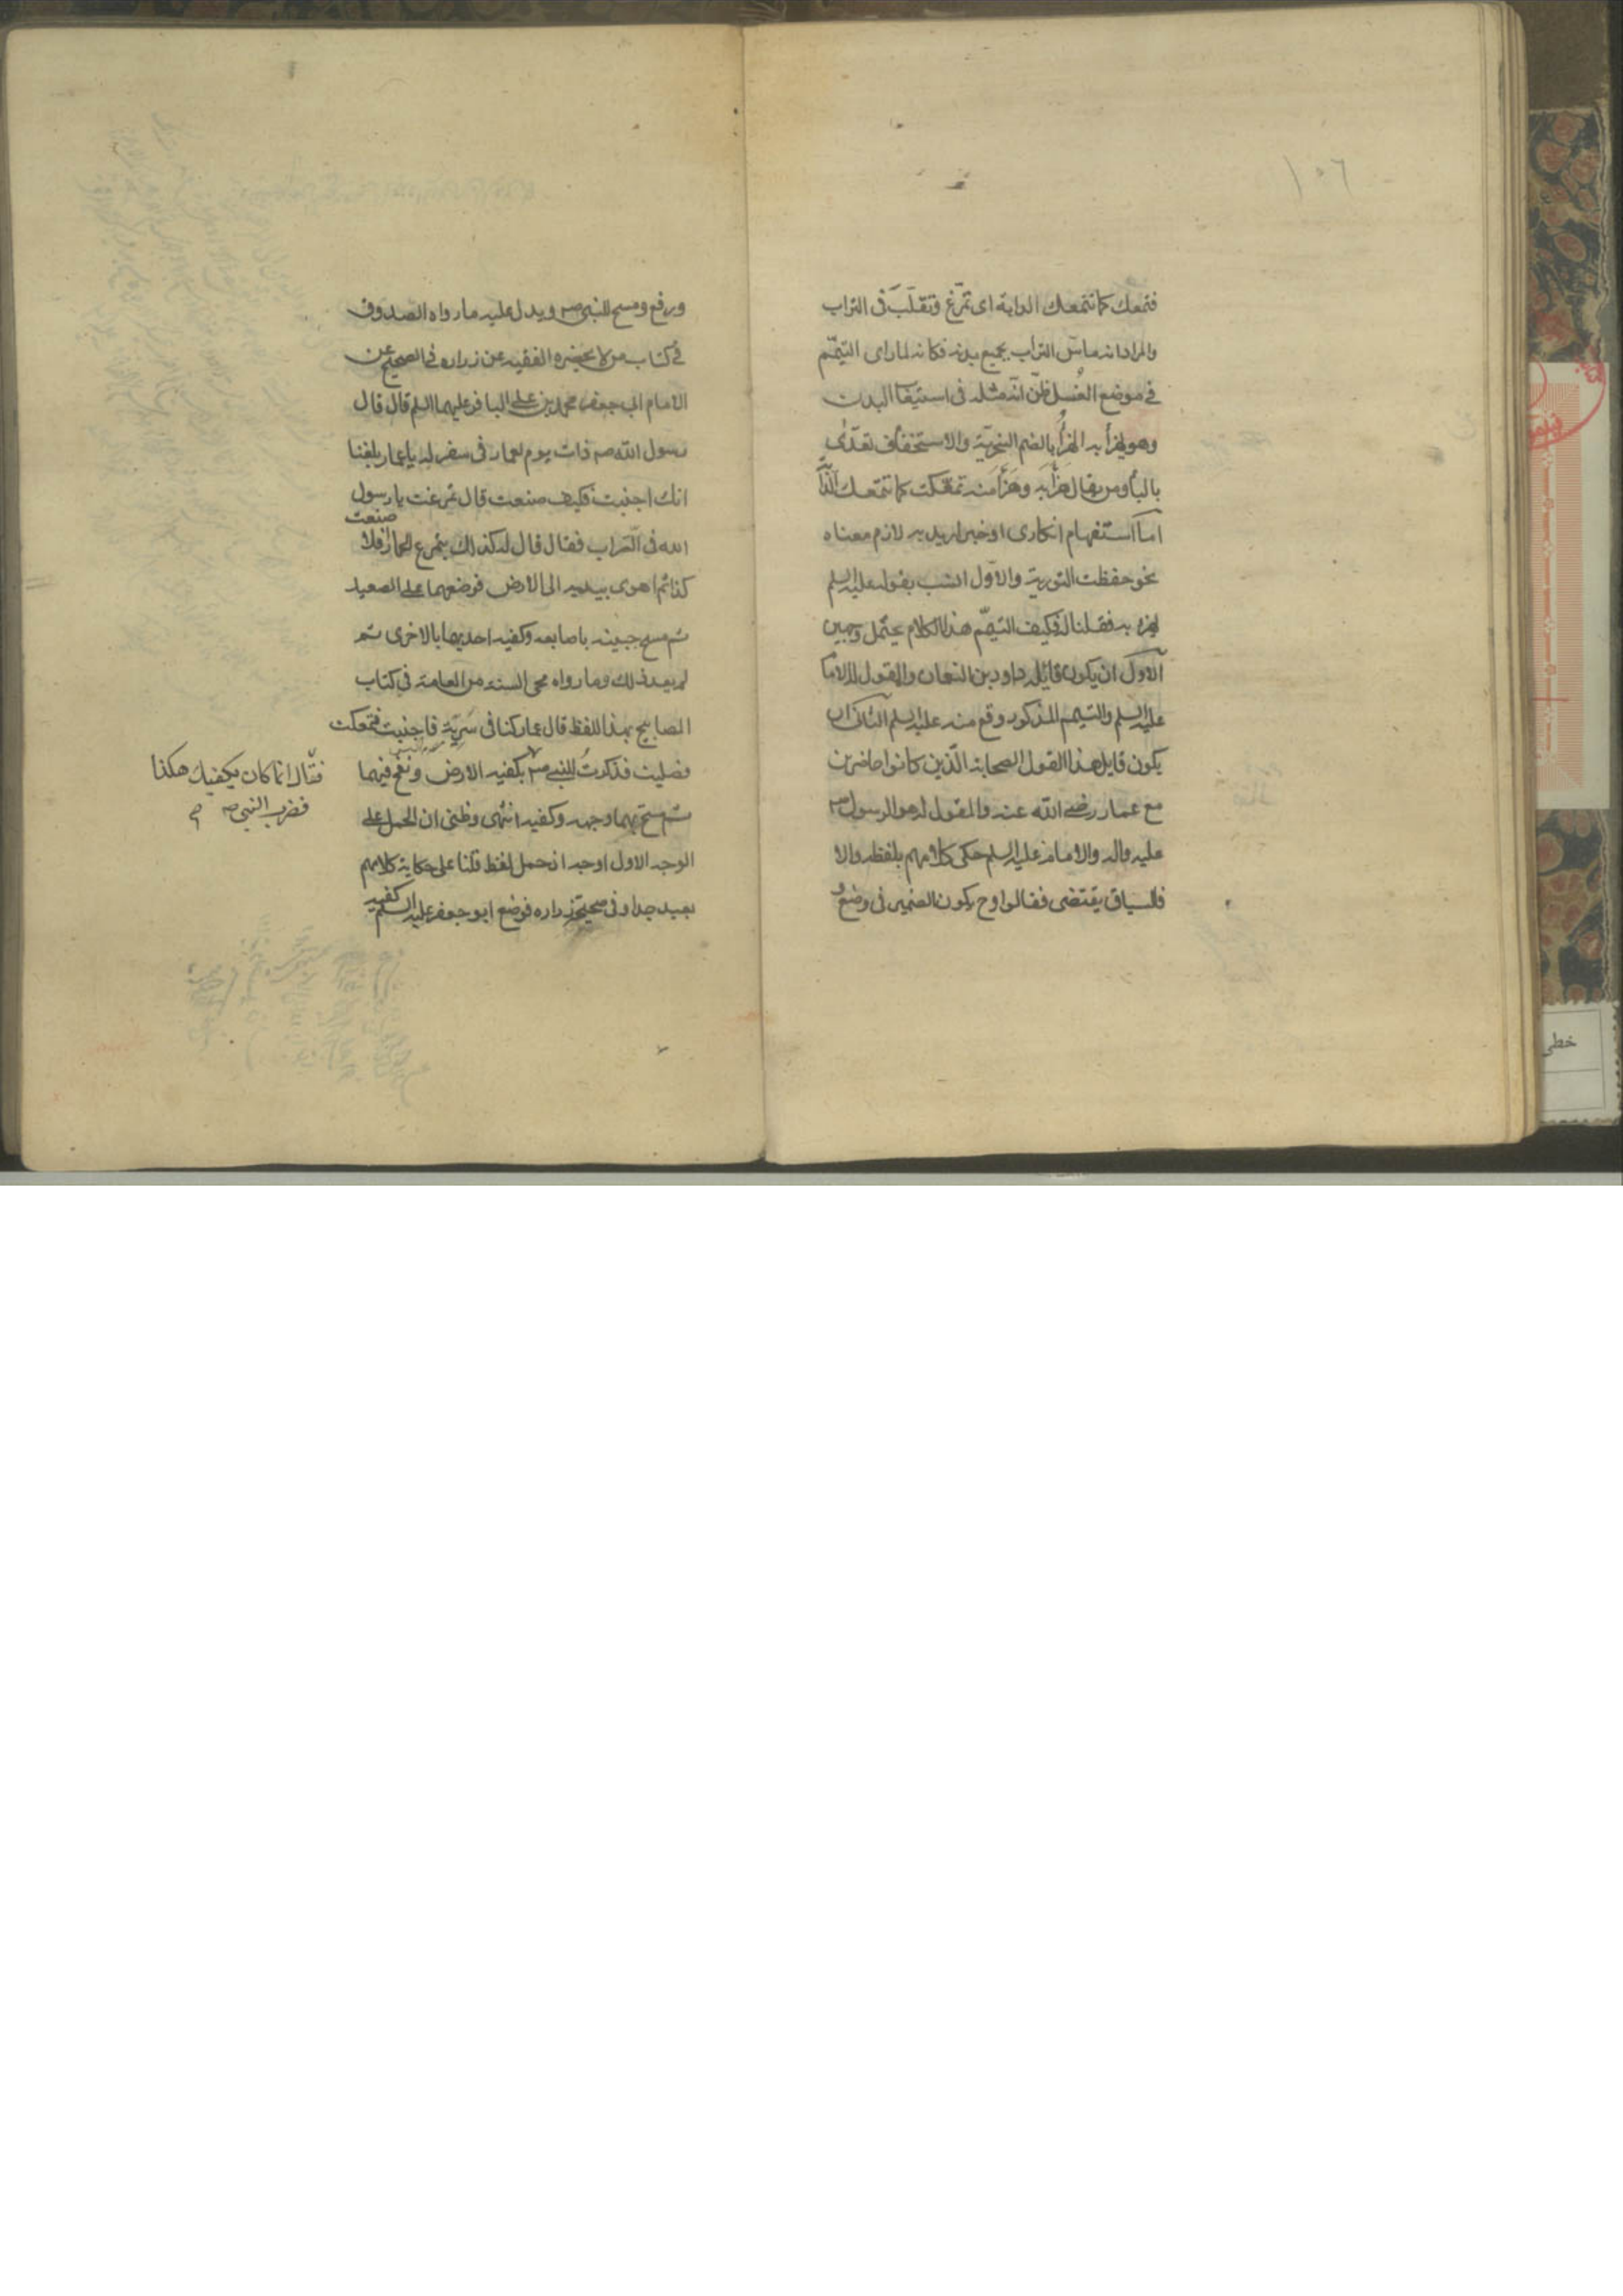 ١٥٦
فتمعك كما تتمعك الدابة اى تمرّغ وتقلّب فى التراب
والمراد انه ماسّ التراب بجميع بدنه فكانه لما راى التيمّم
فى موضع الغُسل ظنّ انّه مثله فى استيعاب البدن
وهو يهزأ به الهزُأ بالضم السخريّة والاستخفاف تعدّى
بالبأ ومن يقال هزأبه وهزأ منه تمعّكت كما تتمعك الدّابّة
امّا استفهام انكارى او خبر اريد به لازم معناه
نحو حفظت التورية والاول انسب بقوله عليه السلم
يهزء به فقلنا له فكيف التيمّم هذا الكلام يحتمل وجهين
الاول ان يكون قائله داود بن النعمان والمقول له الامام
عليه السلم والتيمم المذكور وقع منه عليه السلم الثانى ان
يكون قايل هذا القول الصحابة الّذين كانوا حاضرين
مع عمار رضى الله عنه والمقول له هو الرسول ص
عليه واله والامام عليه السلم حكى كلامهم بلفظه والا
فالسياق يقتضى فقالوا وح يكون الضمير فى وضع و
ورفع ومسح للنبى ص ويدل عليه ما رواه الصدوق
فى كتاب من لا يحضره الفقيه عن زراره فى الصحيح عن
الامام ابى جعفر محمد بن على الباقر عليهما السلم قال قال
رسول الله ص ذات يوم لعمار فى سفر له يا عمار بلغنا
انك اجنبت فكيف صنعت قال تمرغت يا رسول
الله فى التراب فقال قال له كذلك يتمرغ الحمار افلا صنعت
كذا ثم اهوى بيديه الى الارض فوضعهما على الصعيد
ثم مسح جبينه باصابعه وكفيه احديهما بالاخرى ثم
لم يعد ذلك وما رواه محى السنه من العامة فى كتاب
المصابيح بهذا اللفظ قال عمار كنا فى سَرِيّةٍ فاجنبت فتمعكت
فصليت فذكرتُ للنبى ص بكفيه الارض ونفخ فيهما
فقال انما كان يكفيك هكذا
فضرب النبى ص
ثم مسح بهما وجهه وكفيه انتهى وظنى ان الحمل على
الوجه الاول اوجه اذ حمل لفظ قلنا على حكاية كلامهم
بعيد جدا وفى صحيحة زراره فوضع ابو جعفر عليه السلم كفيه
خطى